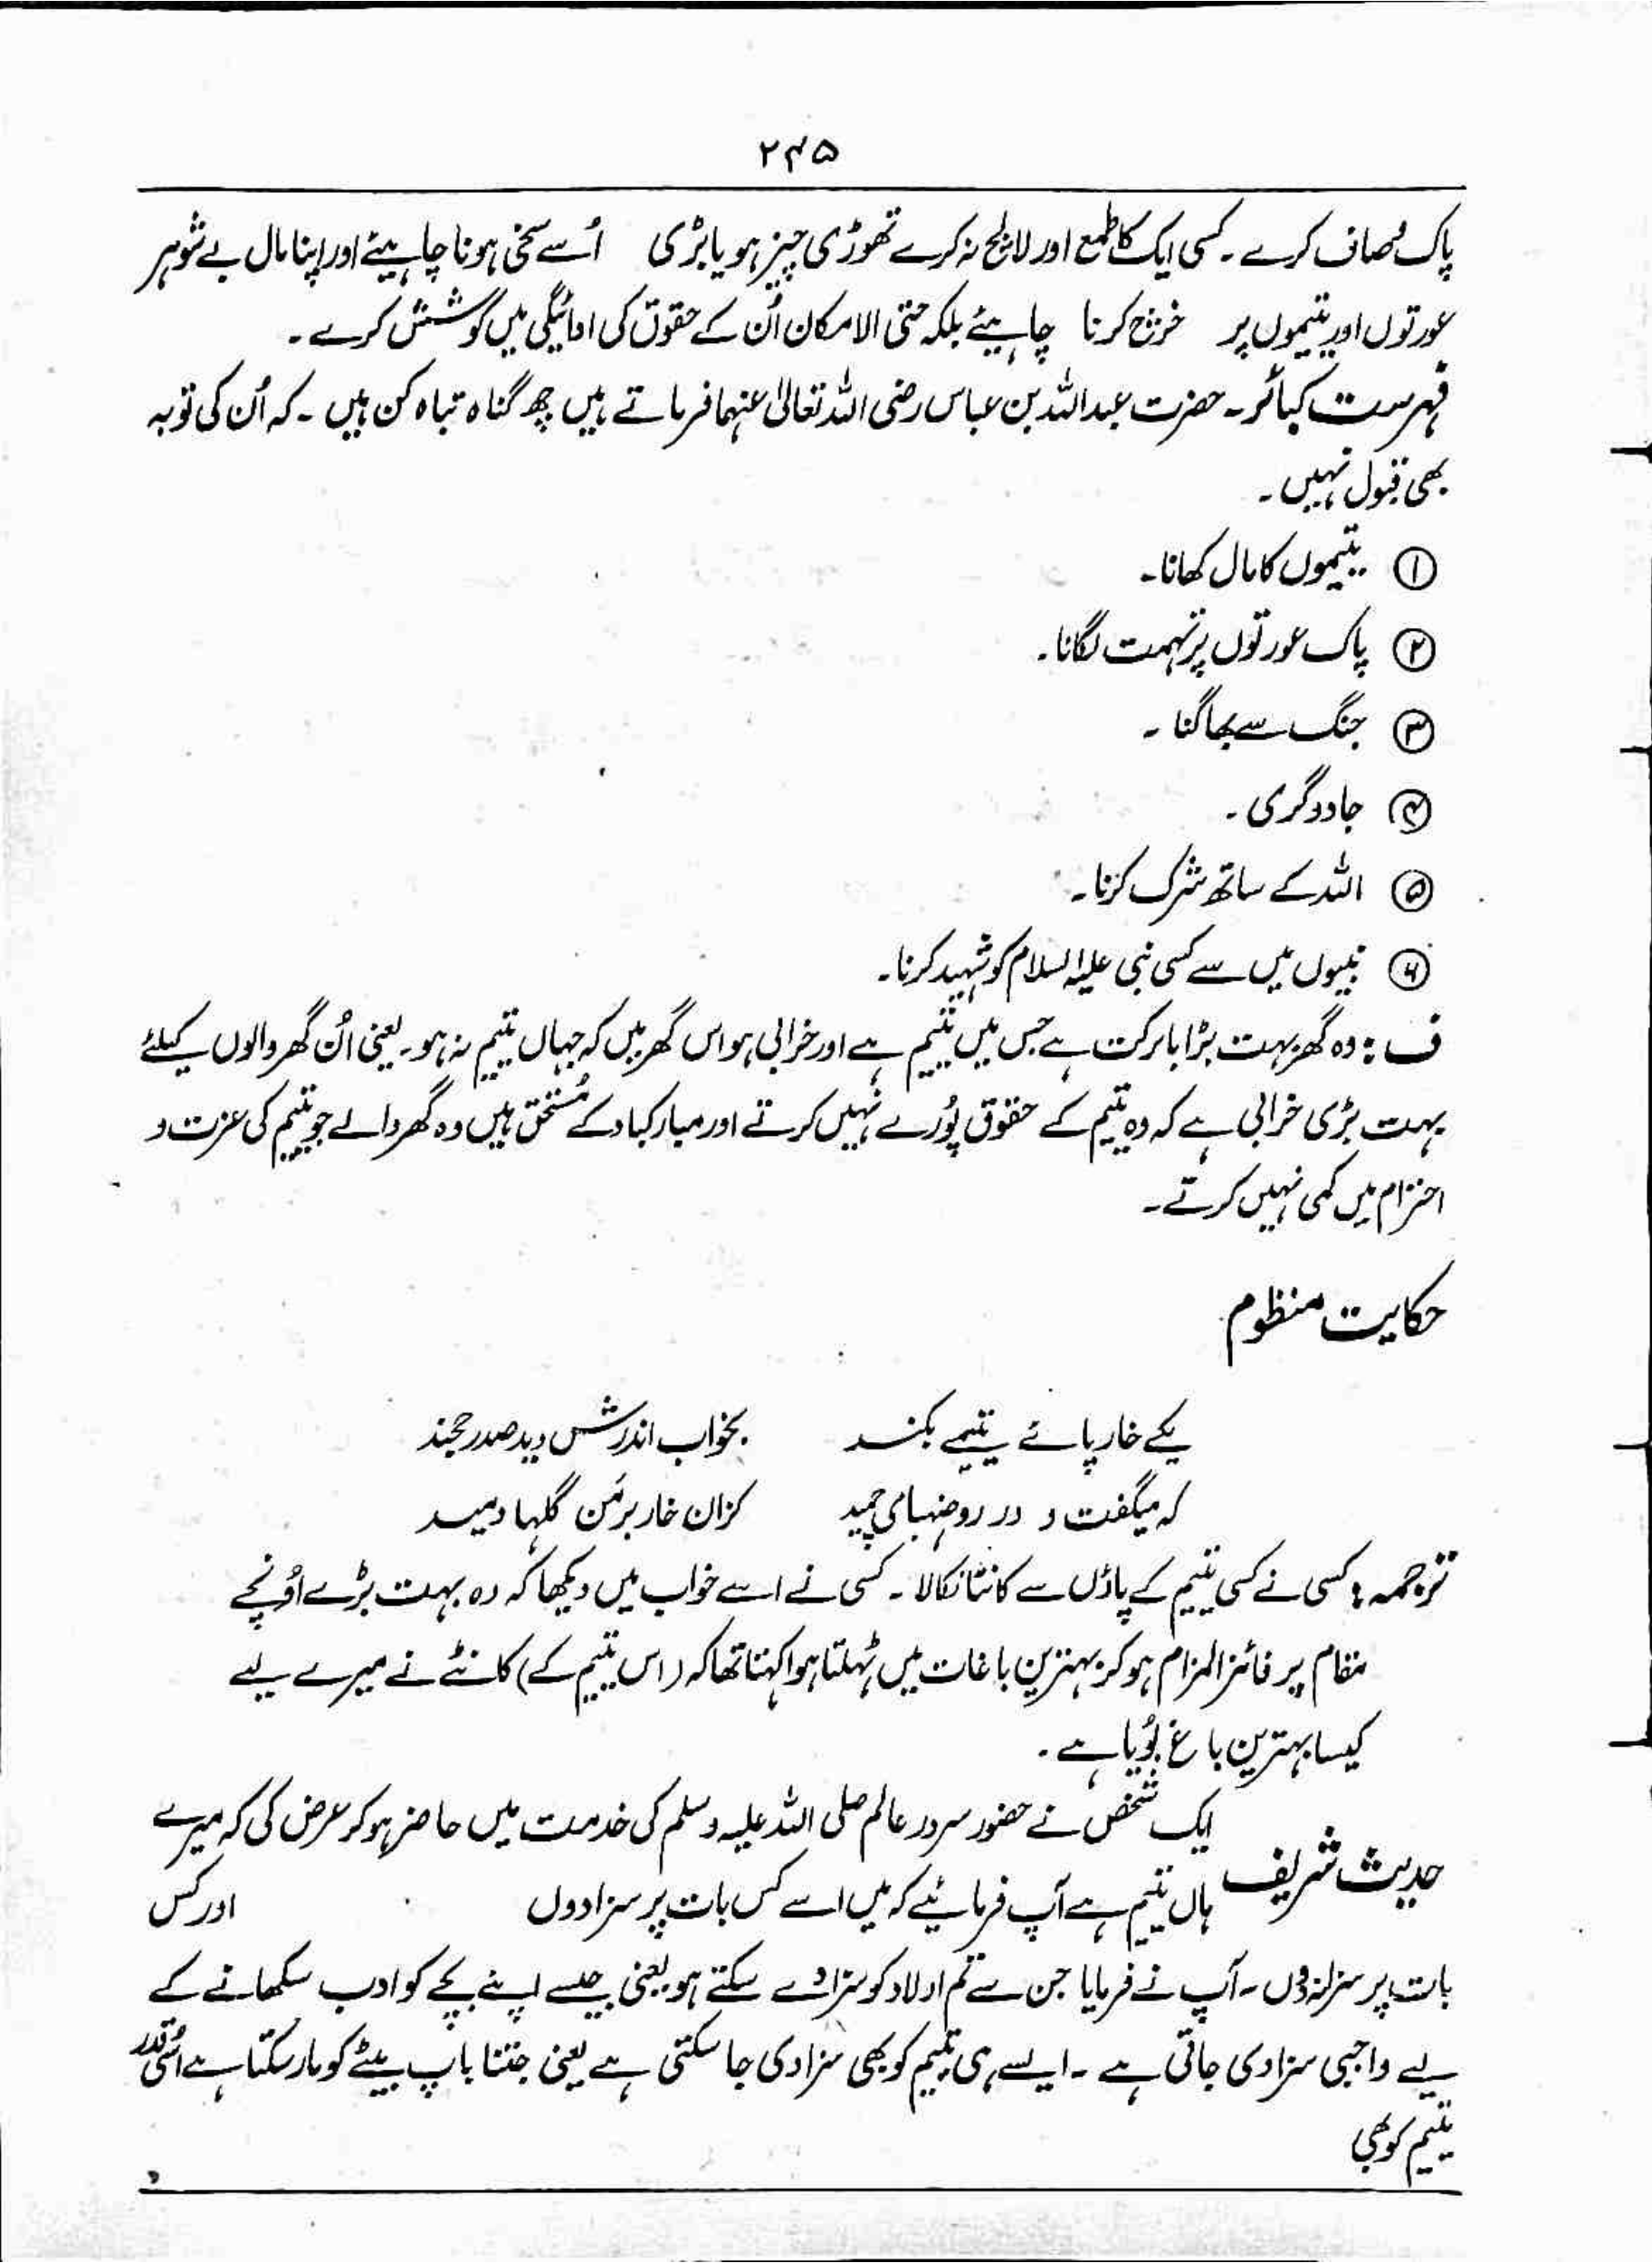 ۲۴۵
پاک و صاف کرے ۔ کسی ایک کا طمع اور لالچ نہ کرے تھوڑی چیز ہو یا بڑی اُسے سخی ہونا چاہیئے اور اپنا مال بے شوہر
عورتوں اور یتیموں پر خرچ کرنا چاہیئے بلکہ حتی الامکان اُن کے حقوق کی ادائیگی میں کوشش کرے ۔
فہرست کبائر ۔ حضرت عبداللہ بن عباس رضی اللہ تعالیٰ عنہما فرماتے ہیں چھ گناہ تباہ کن ہیں ۔ کہ اُن کی توبہ
بھی قبول نہیں ۔
① یتیموں کا مال کھانا ۔
② پاک عورتوں پر تہمت لگانا ۔
③ جنگ سے بھاگنا ۔
④ جادوگری ۔
⑤ اللہ کے ساتھ شرک کرنا ۔
⑥ نبیوں میں سے کسی نبی علیہ السلام کو شہید کرنا ۔
ف : وہ گھر بہت بڑا بابرکت ہے جس میں یتیم ہے اور خرابی ہو اس گھر میں کہ جہاں یتیم نہ ہو ۔ یعنی اُن گھر والوں کیلئے
بہت بڑی خرابی ہے کہ وہ یتیم کے حقوق پُورے نہیں کرتے اور مبارکباد کے مُستحق ہیں وہ گھر والے جو یتیم کی عزت و
احترام میں کمی نہیں کرتے ۔
حکایت منظوم
یکے خار پائے یتیمے بکند بخواب اندرش دید صدر خجند
کہ میگفت و در روضہای چمید کزان خار بر من گلہا دمید
ترجمہ : کسی نے کسی یتیم کے پاؤں سے کانٹا نکالا ۔ کسی نے اسے خواب میں دیکھا کہ وہ بہت بڑے اُونچے
مقام پر فائز المرام ہو کر بہترین باغات میں ٹہلتا ہوا کہتا تھا کہ (اس یتیم کے) کانٹے نے میرے لیے
کیسا بہترین باغ بُویا ہے ۔
حدیث شریف ایک شخص نے حضور سرور عالم صلی اللہ علیہ وسلم کی خدمت میں حاضر ہو کر عرض کی کہ میرے
ہاں یتیم ہے آپ فرمائیے کہ میں اسے کس بات پر سزا دوں اور کس
بات پر سزا نہ دوں ۔ آپ نے فرمایا جن سے تم اولاد کو سزا دے سکتے ہو یعنی جیسے اپنے بچے کو ادب سکھانے کے
لیے واجبی سزا دی جاتی ہے ۔ ایسے ہی یتیم کو بھی سزا دی جا سکتی ہے یعنی جتنا باپ بیٹے کو مار سکتا ہے اُسی قدر
یتیم کو بھی